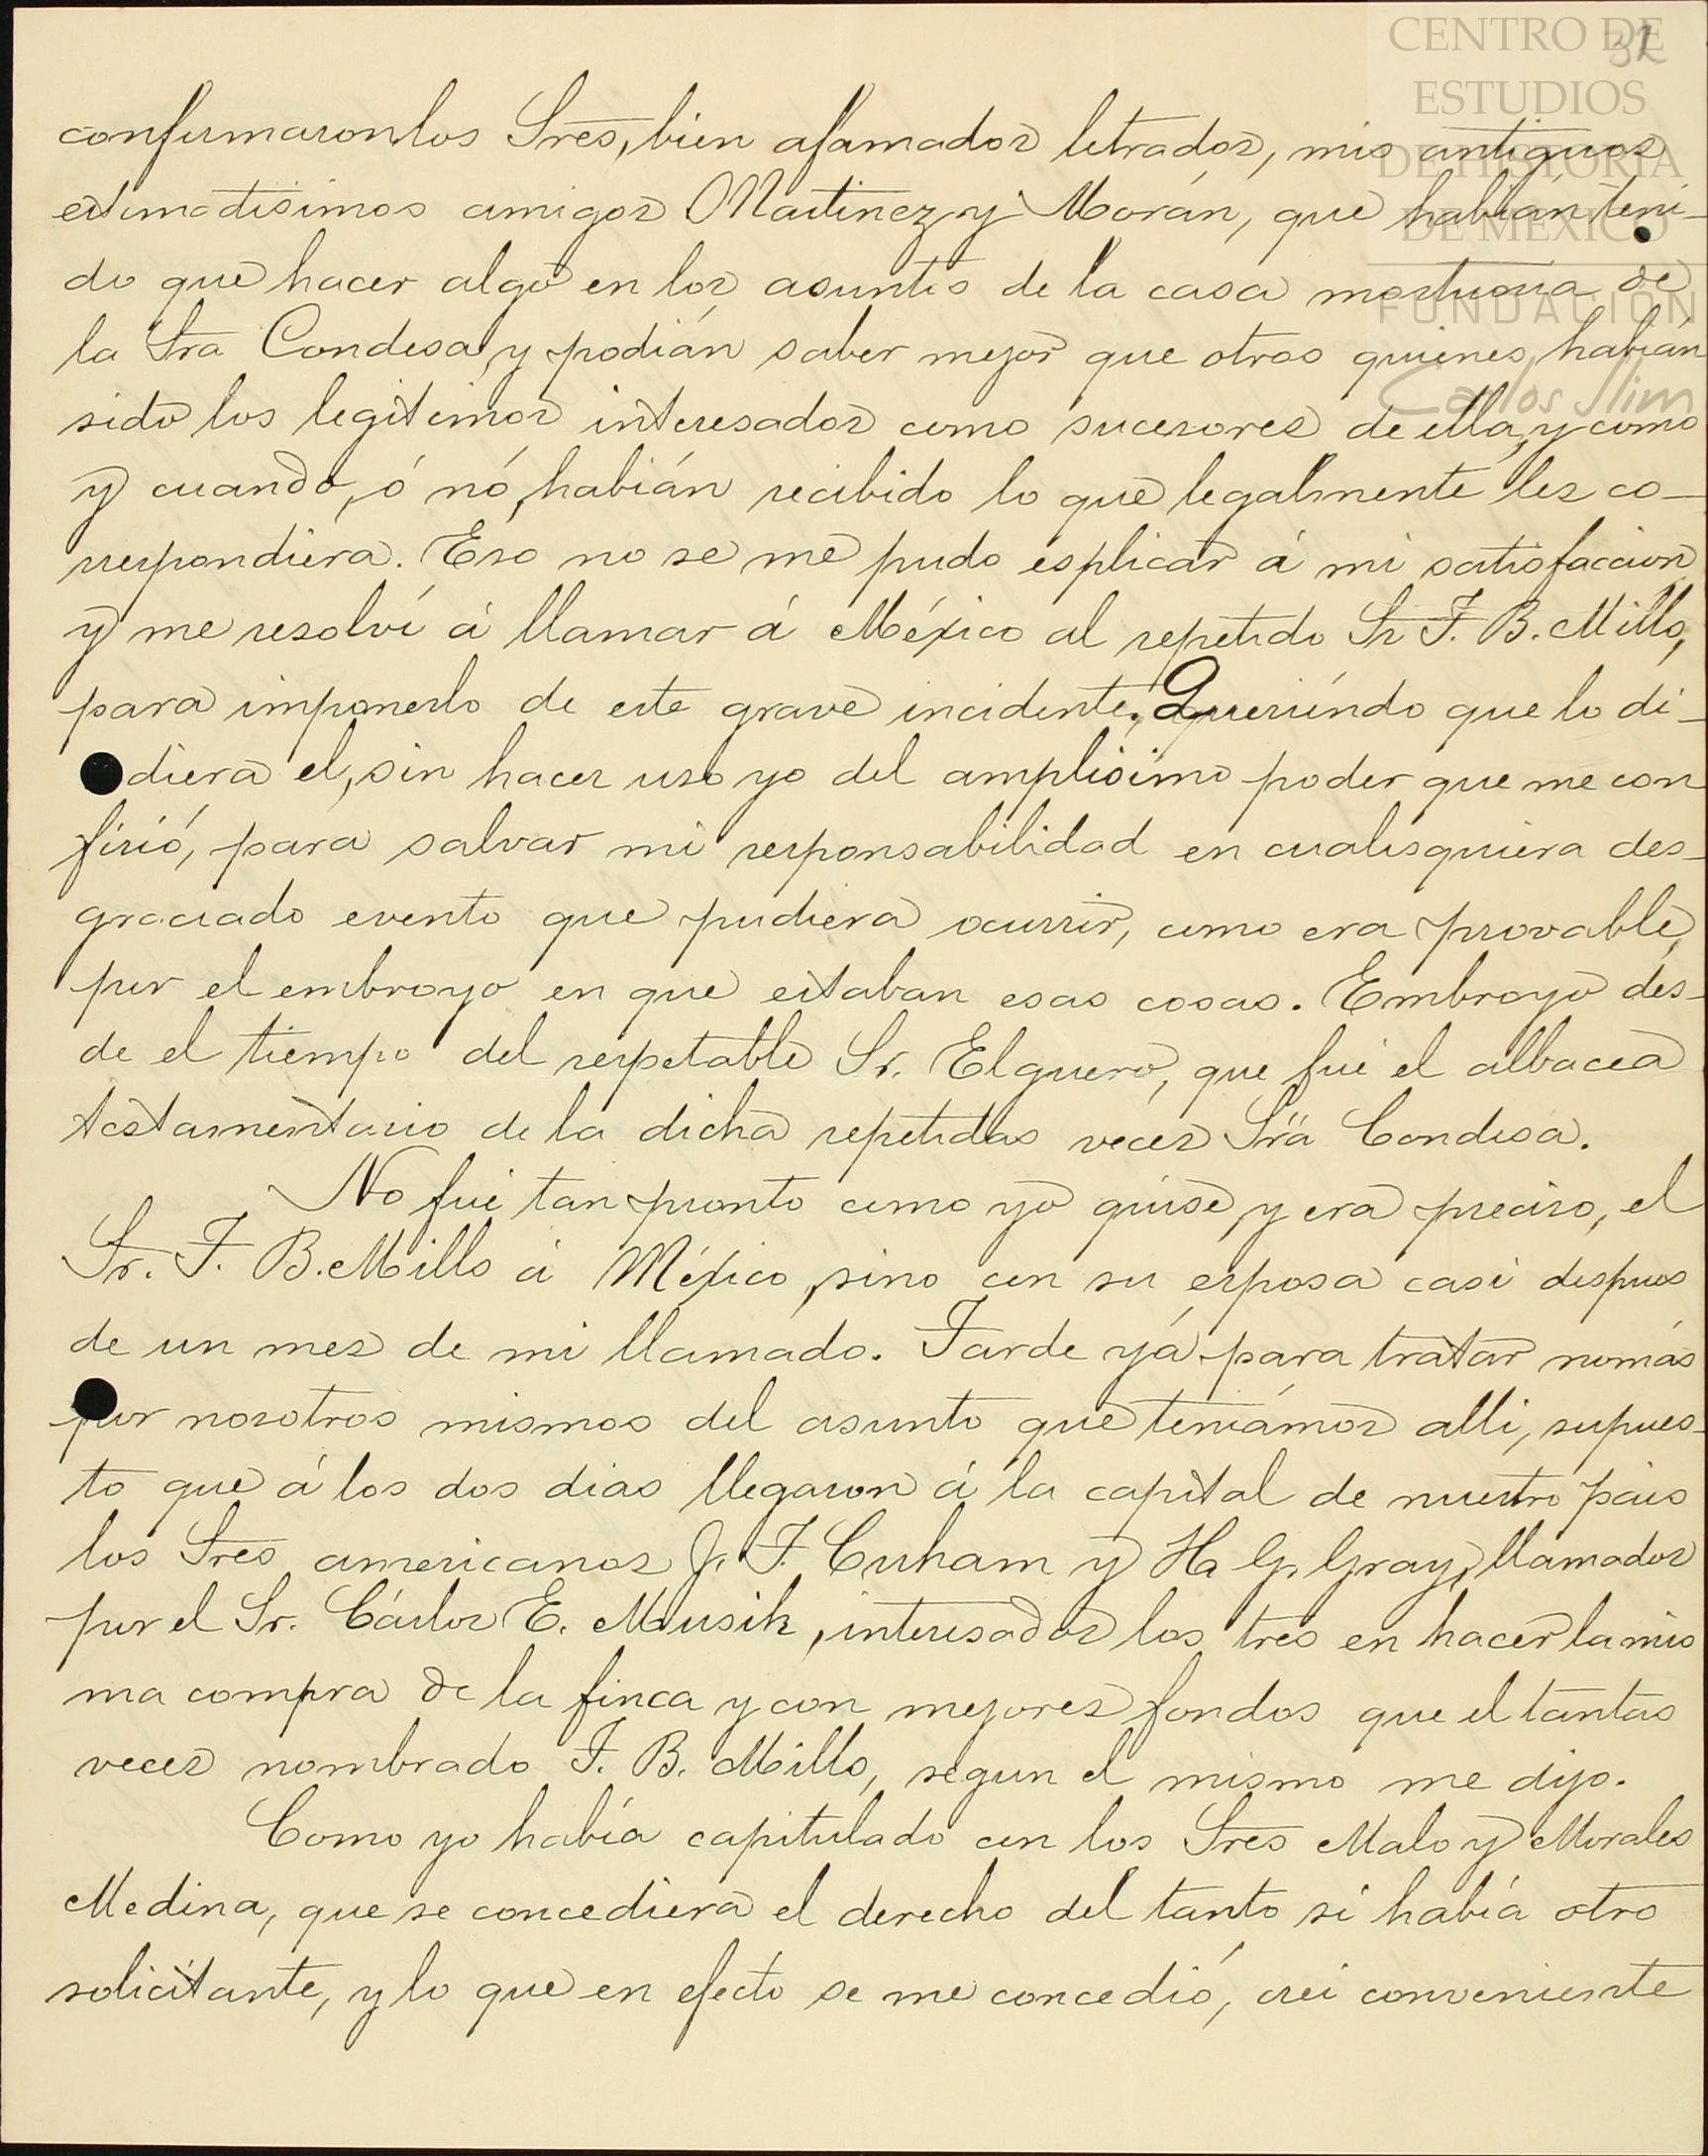 CENTRO DE
ESTUDIOS
DE HISTORIA
DE MEXICO
FUNDACIÓN
Carlos Slim
32
confirmaronlos Sres, bien afamados letrados, mis antiguos
estimadisimos amigos Martinez y Morán, que habían teni-
do que hacer algo en los asuntos de la casa mortuoria de
la Sra Condesa, y podián saber mejor que otros quienes habian
sido los legitimos interesados como sucesores de ella, y como
y cuando, ó nó, habián recibido lo que legalmente les co-
rrespondiera. Eso no se me pudo esplicar á mi satisfaccion
y me resolví á llamar á México al repetido Sr F. B. Mills,
para imponerlo de este grave incidente. Queriéndo que lo di-
diera el, sin hacer uso yo del amplisimo poder que me con
firió, para salvar mi responsabilidad en cualisquiera des-
graciado evento que pudiera ocurrir, como era provable,
por el embroyo en que estaban esas cosas. Embroyo des-
de el tiempo del respetable Sr. Elguero, que fué el albacea
testamentario de la dicha repetidas veces Sra Condesa.
No fué tan pronto como yo quise, y era preciso, el
Sr. F. B. Mills á México, sino con su esposa casi despues
de un mes de mi llamado. Tarde yá para tratar nomás
por nosotros mismos del asunto que teniámos alli, supues-
to que á los dos dias llegaron á la capital de nuestro pais
los Sres americanos J. F. Cuham y H. G. Gray, llamados
por el Sr. Cárlos E. Musik, interesados los tres en hacer la mis
ma compra de la finca y con mejores fondos que el tantas
veces nombrado F. B. Mills, segun el mismo me dijo.
Como yo había capitulado con los Sres Malo y Morales
Medina, que se concediera el derecho del tanto si había otro
solicitante, y lo que en efecto se me concedió, crei conveniente